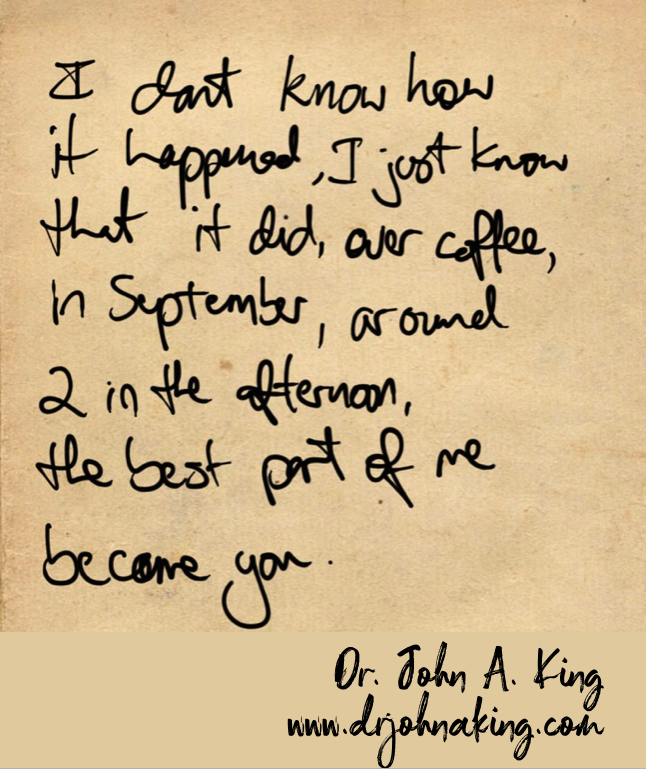 I dont know how
it happened, I just know
that it did, over coffee,
in September, around
2 in the afternoon,
the best part of me
became you.
Dr. John A. King
www.drjohnaking.com